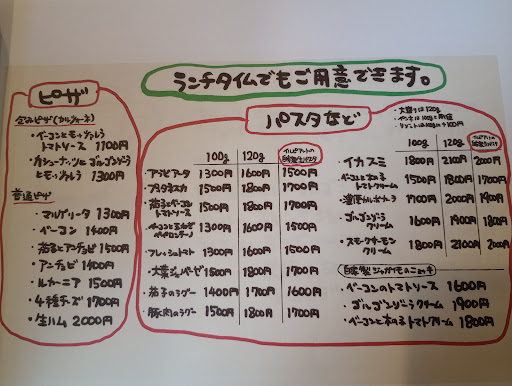 ランチタイムでもご用意できます。
ピザ
包みピザ(カルツォーネ)
・ベーコンとモッツァレラ
トマトソース 1100円
・カシューナッツとゴルゴンゾーラ
とモッツァレラ 1300円
普通ピザ
・マルゲリータ 1300円
・ベーコン 1400円
・茄子とアンチョビ 1500円
・アンチョビ 1400円
・ルカーニア 1500円
・4種チーズ 1700円
・生ハム 2000円
パスタなど
・大盛りは120g
100g 120g
自家製パスタ
・アラビアータ 1300円 1600円 1500円
・プッタネスカ 1500円 1800円 1700円
・茄子とベーコン
トマトソース 1500円 1800円 1700円
・ベーコンと玉ねぎ
ペペロンチーノ 1300円 1600円 1500円
・フレッシュトマト 1300円 1600円 1500円
・大葉ジェノベーゼ 1500円 1800円 1700円
・茄子のラグー 1400円 1700円 1600円
・豚肉のラグー 1500円 1800円 1700円
100g 120g
・イカスミ 1800円 2100円 2000円
・ベーコンときのこ
トマトクリーム 1500円 1800円 1700円
1700円 2000円 1900円
・ゴルゴンゾーラ
クリーム 1600円 1900円 1800円
・スモークサーモン
クリーム 1800円 2100円 2000円
自家製 ジャガイモのニョッキ
・ベーコンのトマトソース 1600円
・ゴルゴンゾーラクリーム 1900円
・ベーコンときのこ トマトクリーム 1800円